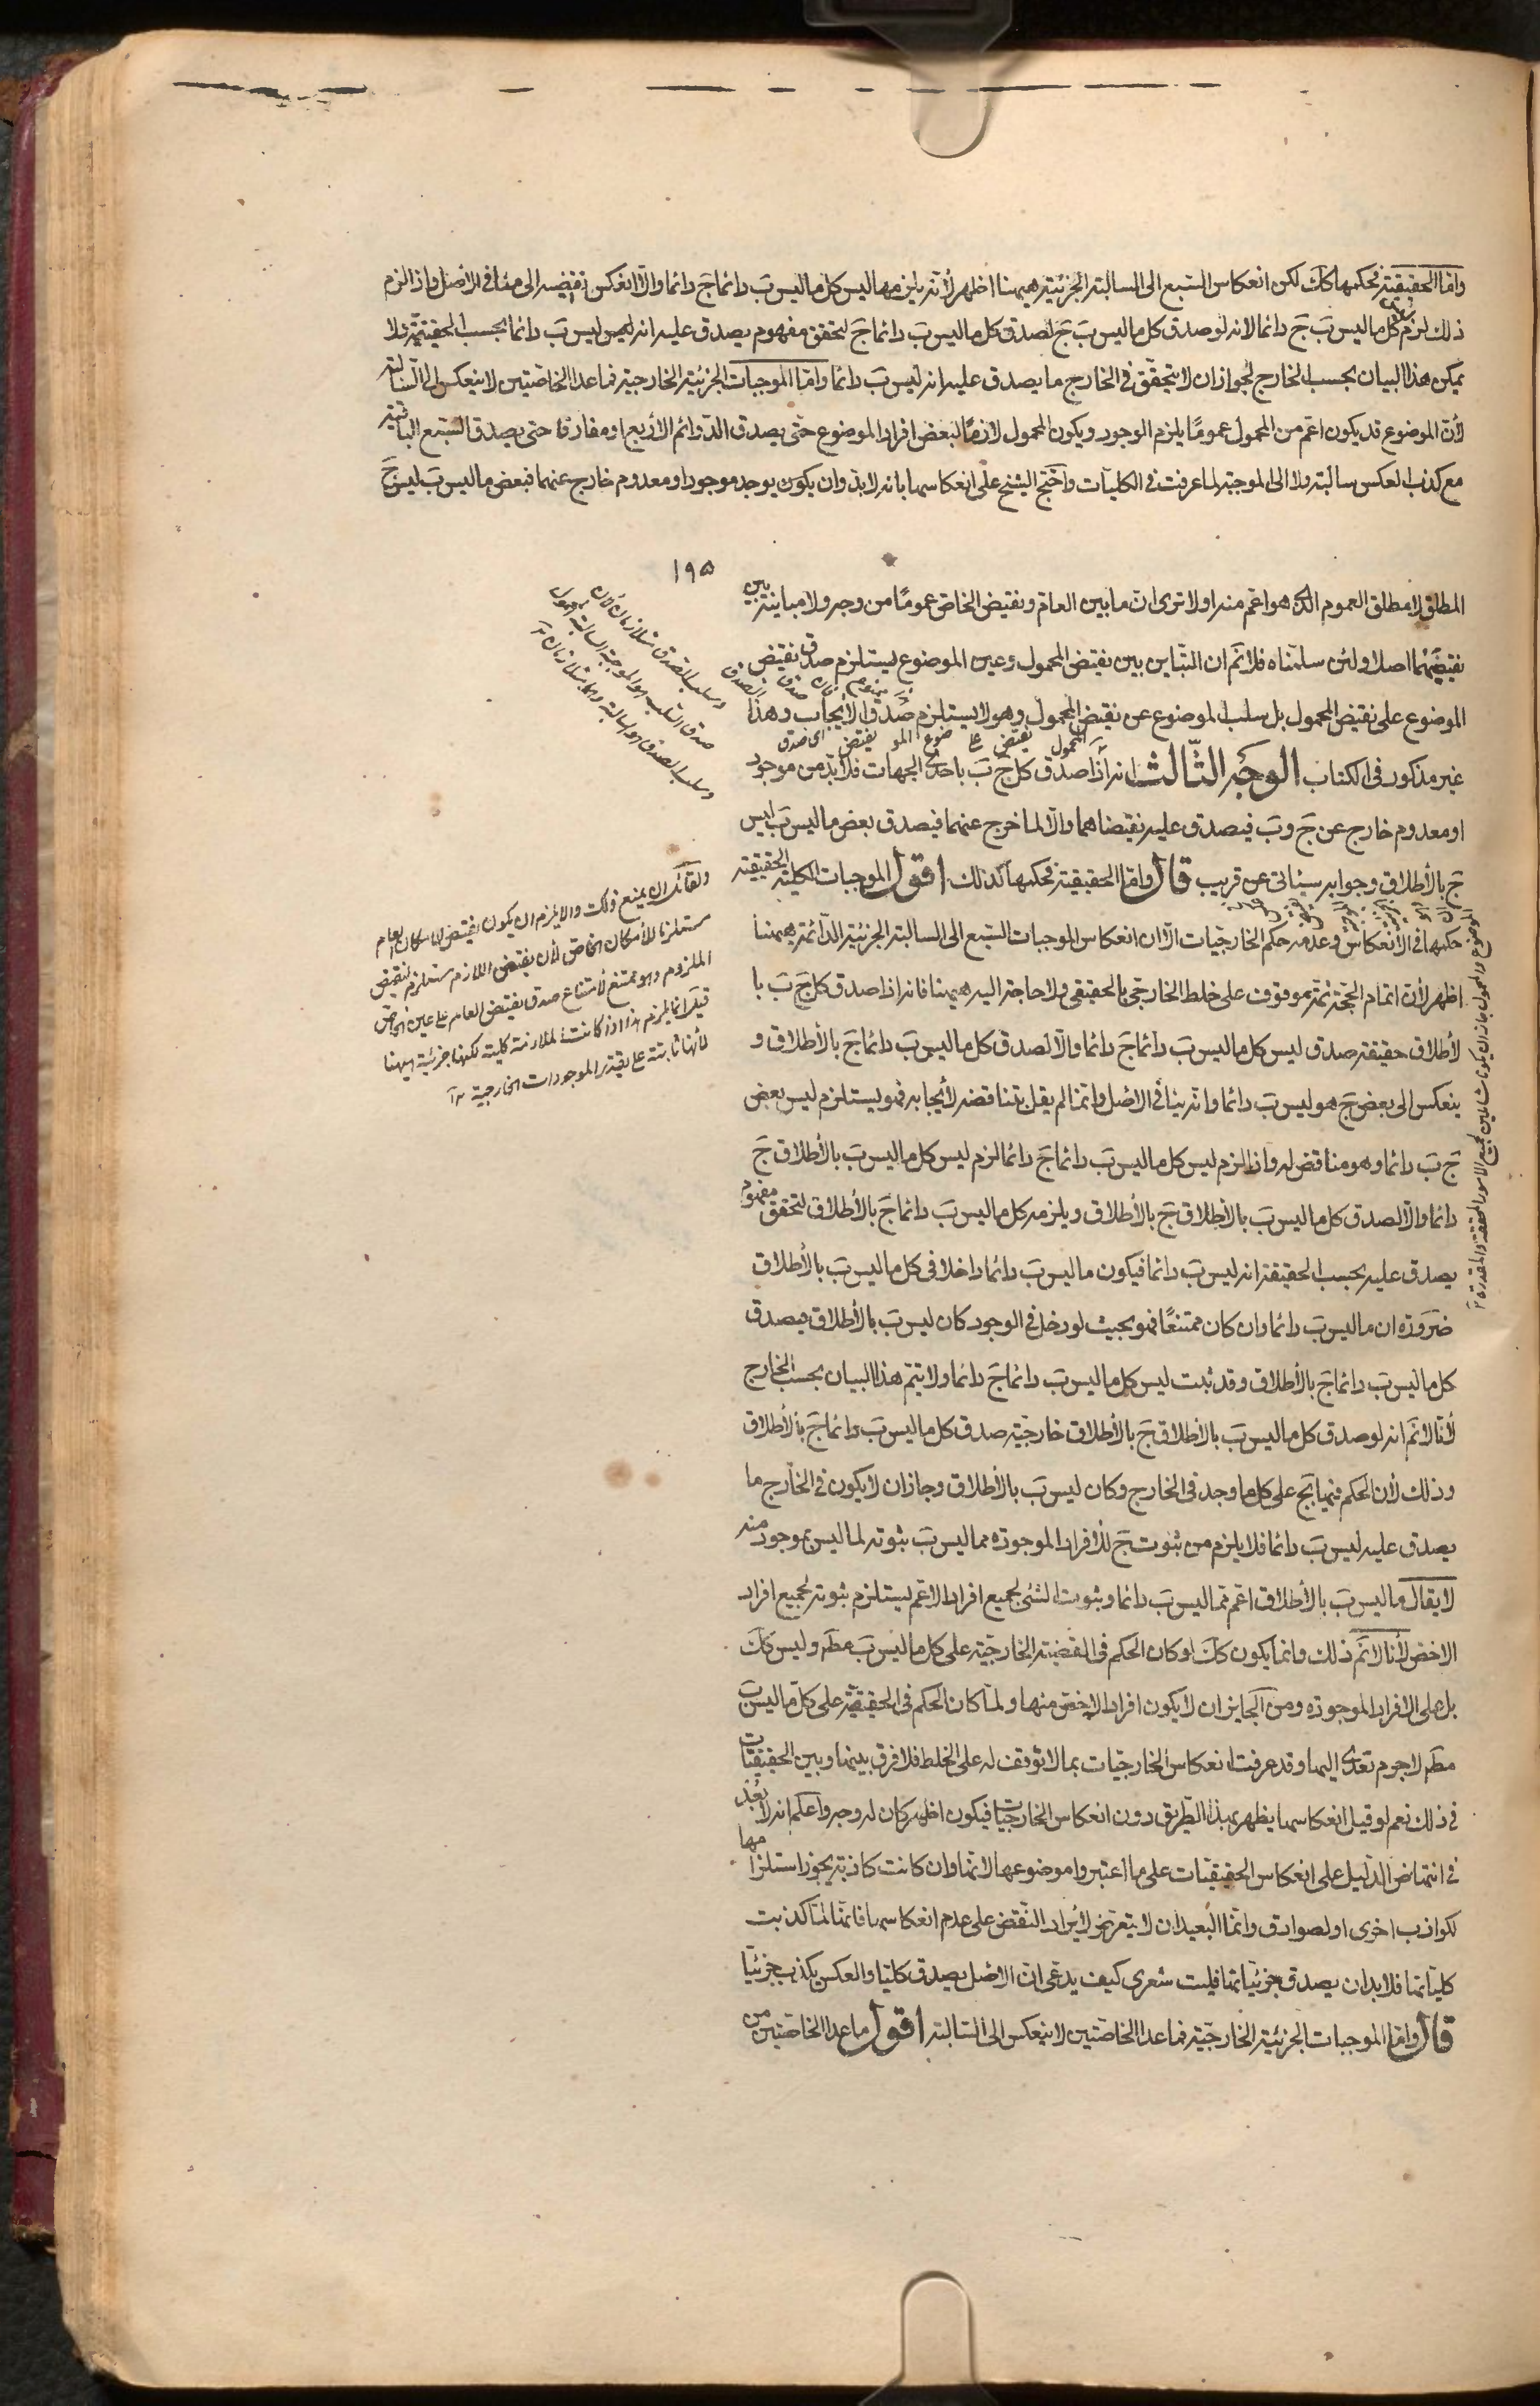 واما الحقيقية فحكمها كك لكن انعكاس السبع الى السالبة الجزئية ههنا اظهر لأنه يلزمها ليس كل ما ليس بَ دائما جَ دائما والا انعكس نقيضه الى منافى الاصل واذا لزم
ذلك لزم كل ما ليس بَ جَ دائما لانه لو صدق كل ما ليس بَ جَ لصدق كل ما ليس بَ دائما جَ لتحقق مفهوم يصدق عليه انه ليس بَ دائما بحسب الحقيقة ولا
يمكن هذا البيان بحسب الخارج لجواز ان لا يتحقق فى الخارج ما يصدق عليه انه ليس بَ دائما واما الموجبات الجزئية الخارجية فما عدا الخاصتين لا ينعكس الى السالبة
لأن الموضوع قد يكون اعم من المحمول عموما يلزم الوجود ويكون المحمول لازما لبعض افراد الموضوع حتى يصدق الدوائم الأربع او مفارقا حتى يصدق السبع الباقية
مع كذب العكس سالبة ولا الى الموجبة لما عرفت فى الكليات واحتج الشيخ على انعكاسها بانه لابد وان يكون يوجد موجود او معدوم خارج عنهما فبعض ما ليس بَ ليس جَ
١٩٥
المطلق لا مطلق العموم الذى هو اعم منه او لا ترى ان ما بين العام ونقيض الخاص عموما من وجه ولا مباينة بين
نقيضيهما اصلا ولئن سلمناه فلا نم ان التباين بين نقيض المحمول وعين الموضوع ليستلزم صدق نقيض
الموضوع على نقيض المحمول بل سلب الموضوع عن نقيض المحمول وهو لا يستلزم صدق الأيجاب وهذا
غير مذكور فى الكتاب الوجه الثالث انه اذا صدق كل جَ بَ باحدى الجهات فلابد من موجود
او معدوم خارج عن جَ وبَ فيصدق عليه نقيضاهما والا لما خرج عنهما فيصدق بعض ما ليس بَ ليس
جَ بالأطلاق وجوابه سيأتى عن قريب قال واما الحقيقية فحكمها كذلك اقول الموجبات الكلية الحقيقية
حكمها فى الأنعكاس وعدمه حكم الخارجيات الا ان انعكاس الموجبات السبع الى السالبة الجزئية الدائمة ههنا
اظهر لأن اتمام الحجة ثمة موقوف على خلط الخارجى بالحقيقى ولا حاجة اليه ههنا فانه اذا صدق كل جَ بَ با
لأطلاق حقيقة صدق ليس كل ما ليس بَ دائما جَ دائما والا لصدق كل ما ليس بَ دائما جَ بالأطلاق و
ينعكس الى بعض جَ هو ليس بَ دائما وانه ينافى الاصل وانما لم يقل يتناقضه لأيجابه فهو يستلزم ليس بعض
جَ بَ دائما وهو مناقض له واذا لزم ليس كل ما ليس بَ دائما جَ دائما لزم ليس كل ما ليس بَ بالأطلاق جَ
دائما والا لصدق كل ما ليس بَ بالأطلاق جَ بالأطلاق ويلزمه كل ما ليس بَ دائما جَ بالأطلاق لتحقق مفهوم
يصدق عليه بحسب الحقيقة انه ليس بَ دائما فيكون ما ليس بَ دائما داخلا فى كل ما ليس بَ بالأطلاق
ضرورة ان ما ليس بَ دائما وان كان ممتنعا فهو بحيث لو دخل فى الوجود كان ليس بَ بالأطلاق فيصدق
كل ما ليس بَ دائما جَ بالأطلاق وقد ثبت ليس كل ما ليس بَ دائما جَ دائما ولا يتم هذا البيان بحسب الخارج
لأنا لا نم انه لو صدق كل ما ليس بَ بالأطلاق جَ بالأطلاق خارجية صدق كل ما ليس بَ دائما جَ بالأطلاق
وذلك لأن الحكم فيها بج على كل ما وجد فى الخارج وكان ليس بَ بالأطلاق وجاز ان لا يكون فى الخارج ما
يصدق عليه ليس بَ دائما فلا يلزم من ثبوت جَ للأفراد الموجودة مما ليس بَ ثبوته لما ليس بموجود منه
لا يقال ما ليس بَ بالأطلاق اعم مما ليس بَ دائما وثبوت الشئ لجميع افراد الاعم ليستلزم ثبوته لجميع افراد
الاخص لأنا لا نم ذلك وانما يكون كك لو كان الحكم فى القضية الخارجية على كل ما ليس بَ مطه وليس كك
بل على الافراد الموجودة ومن الجايز ان لا يكون افراد الاخص منها ولما كان الحكم فى الحقيقية على كل ما ليس بَ
مطه لاجرم تعدى اليها وقد عرفت انعكاس الخارجيات بما لا توقف له على الخلط فلا فرق بينها وبين الحقيقيات
فى ذلك نعم لو قيل انعكاسها يظهر بهذا الطريق دون انعكاس الخارجيات فيكون اظهر كان له وجه واعلم انه لا بعد
فى انتهاض الدليل على انعكاس الحقيقيات على ما اعتبروا موضوعها لانها وان كانت كاذبة يجوز استلزامها
لكواذب اخرى او لصوادق وانما البعيد ان لا يتعرض لأيراد النقض على عدم انعكاسها فانها لما كذبت
كلياتها فلابد ان يصدق جزئياتها فليت شعرى كيف يدعى ان الاصل يصدق كليا والعكس يكذب جزئيا
قال واما الموجبات الجزئية الخارجية فما عدا الخاصتين لا ينعكس الى السالبة اقول ما عدا الخاصتين من
ولقائل ان يمنع ذلك والا يلزم ان يكون نقيض الامكان العام
مستلزما للأمكان الخاص لأن نقيض اللازم مستلزم لنقيض
الملزوم وهو ممتنع لأمتناع صدق نقيض العام على عين الخاص
قيل انما يلزم هذا اذا كانت الملازمة كلية لكنها جزئية ههنا
لأنها ثابتة على تقدير الموجودات الخارجية